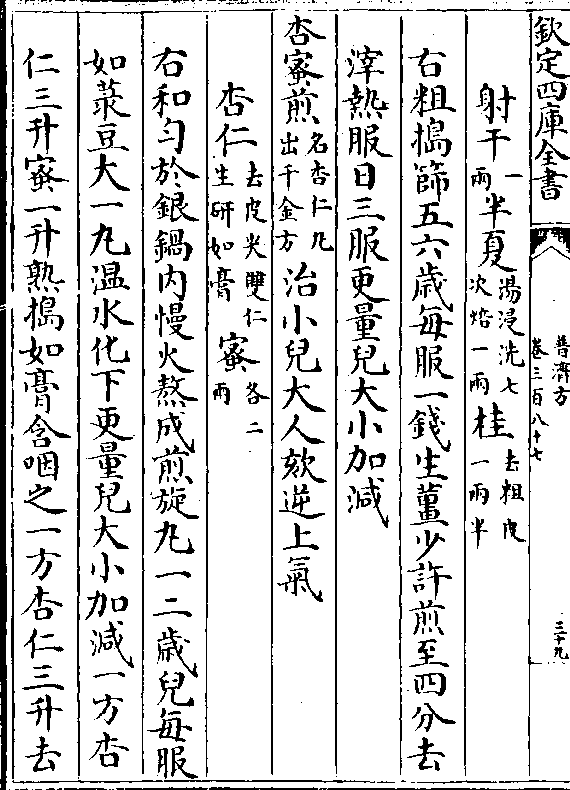 欽定四庫全書
普濟方
卷三百八十七
三十九
射干一兩半夏湯浸洗七次焙一兩桂去粗皮一兩半
右粗搗篩五六歲每服一錢生薑少許煎至四分去
滓熱服日三服更量兒大小加減
杏蜜煎名杏仁丸出千金方治小兒大人欬逆上氣
杏仁去皮尖雙仁生研如膏蜜各二兩
右和勻於銀鍋內慢火熬成煎旋丸一二歲兒每服
如菉豆大一丸温水化下更量兒大小加減一方杏
仁三升蜜一升熟搗如膏含咽之一方杏仁三升去